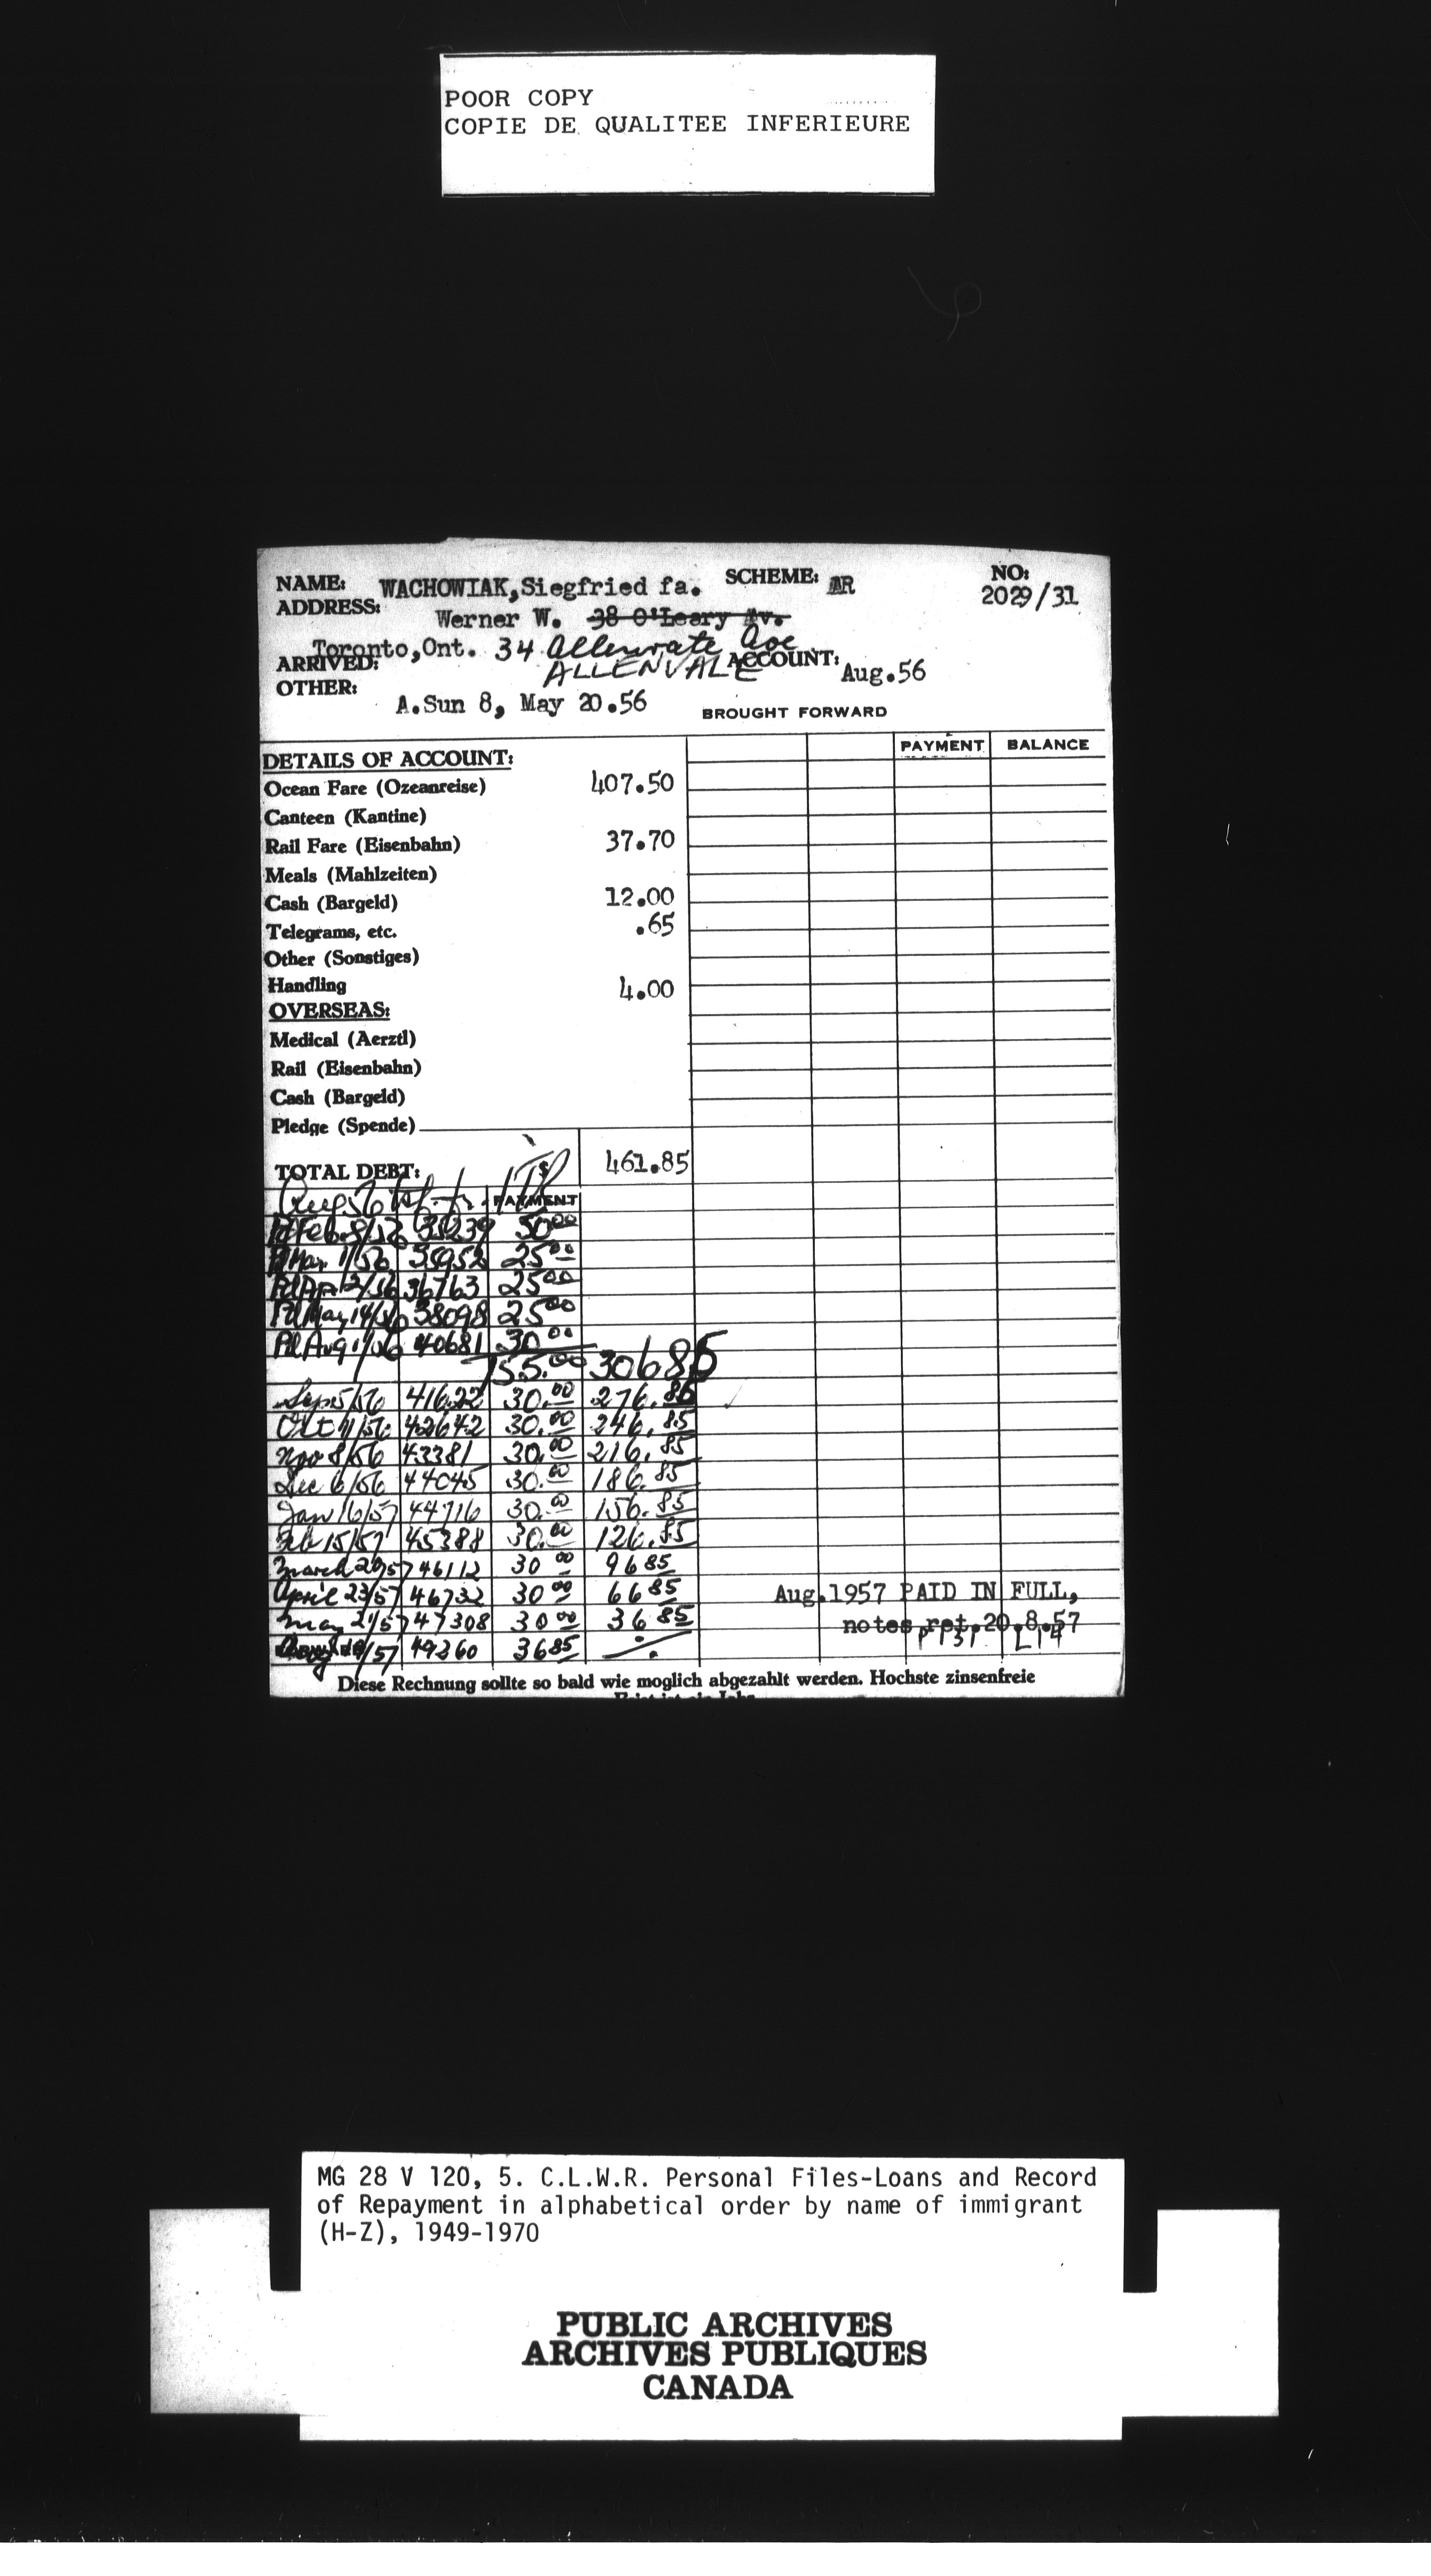 POOR COPY
COPIE DE QUALITEE INFERIEURE
NAME: WACHOWIAK,Siegfried fa. SCHEME: AR NO:
ADDRESS: Werner W. 38 O'Leary Av. 2029/31
Toronto,Ont. 34 Allenvate Ave
ARRIVED: ALLENVALE ACCOUNT: Aug.56
OTHER:
A.Sun 8, May 20.56 BROUGHT FORWARD
PAYMENT BALANCE
DETAILS OF ACCOUNT:
Ocean Fare (Ozeanreise) 407.50
Canteen (Kantine)
Rail Fare (Eisenbahn) 37.70
Meals (Mahlzeiten)
Cash (Bargeld) 12.00
Telegrams, etc. .65
Other (Sonstiges)
Handling 4.00
OVERSEAS:
Medical (Aerztl)
Rail (Eisenbahn)
Cash (Bargeld)
Pledge (Spende)
TOTAL DEBT: $ 461.85
Aug 56 PAYMENT
Pd Feb 8/56 35239 50.00
Pd Mar 1/56 35952 25.00
Pd Apr 12/56 36763 25.00
Pd May 14/56 38098 25.00
Pd Aug 1/56 40681 30.00
155.00 306 85
Sep 5/56 41622 30.00 276.85
Oct 11/56 42642 30.00 246.85
Nov 8/56 43381 30.00 216.85
Dec 6/56 44045 30.00 186.85
Jan 16/57 44716 30.00 156.85
Feb 15/57 45388 30.00 126.85
March 20/57 46112 30 00 96 85
April 23/57 46732 30 00 66 85 Aug.1957 PAID IN FULL,
May 21/57 47308 30 00 36 85 notes ret. 20.8.57
/57 49360 36 85
Diese Rechnung sollte so bald wie moglich abgezahlt werden. Hochste zinsenfreie
MG 28 V 120, 5. C.L.W.R. Personal Files-Loans and Record
of Repayment in alphabetical order by name of immigrant
(H-Z), 1949-1970
PUBLIC ARCHIVES
ARCHIVES PUBLIQUES
CANADA